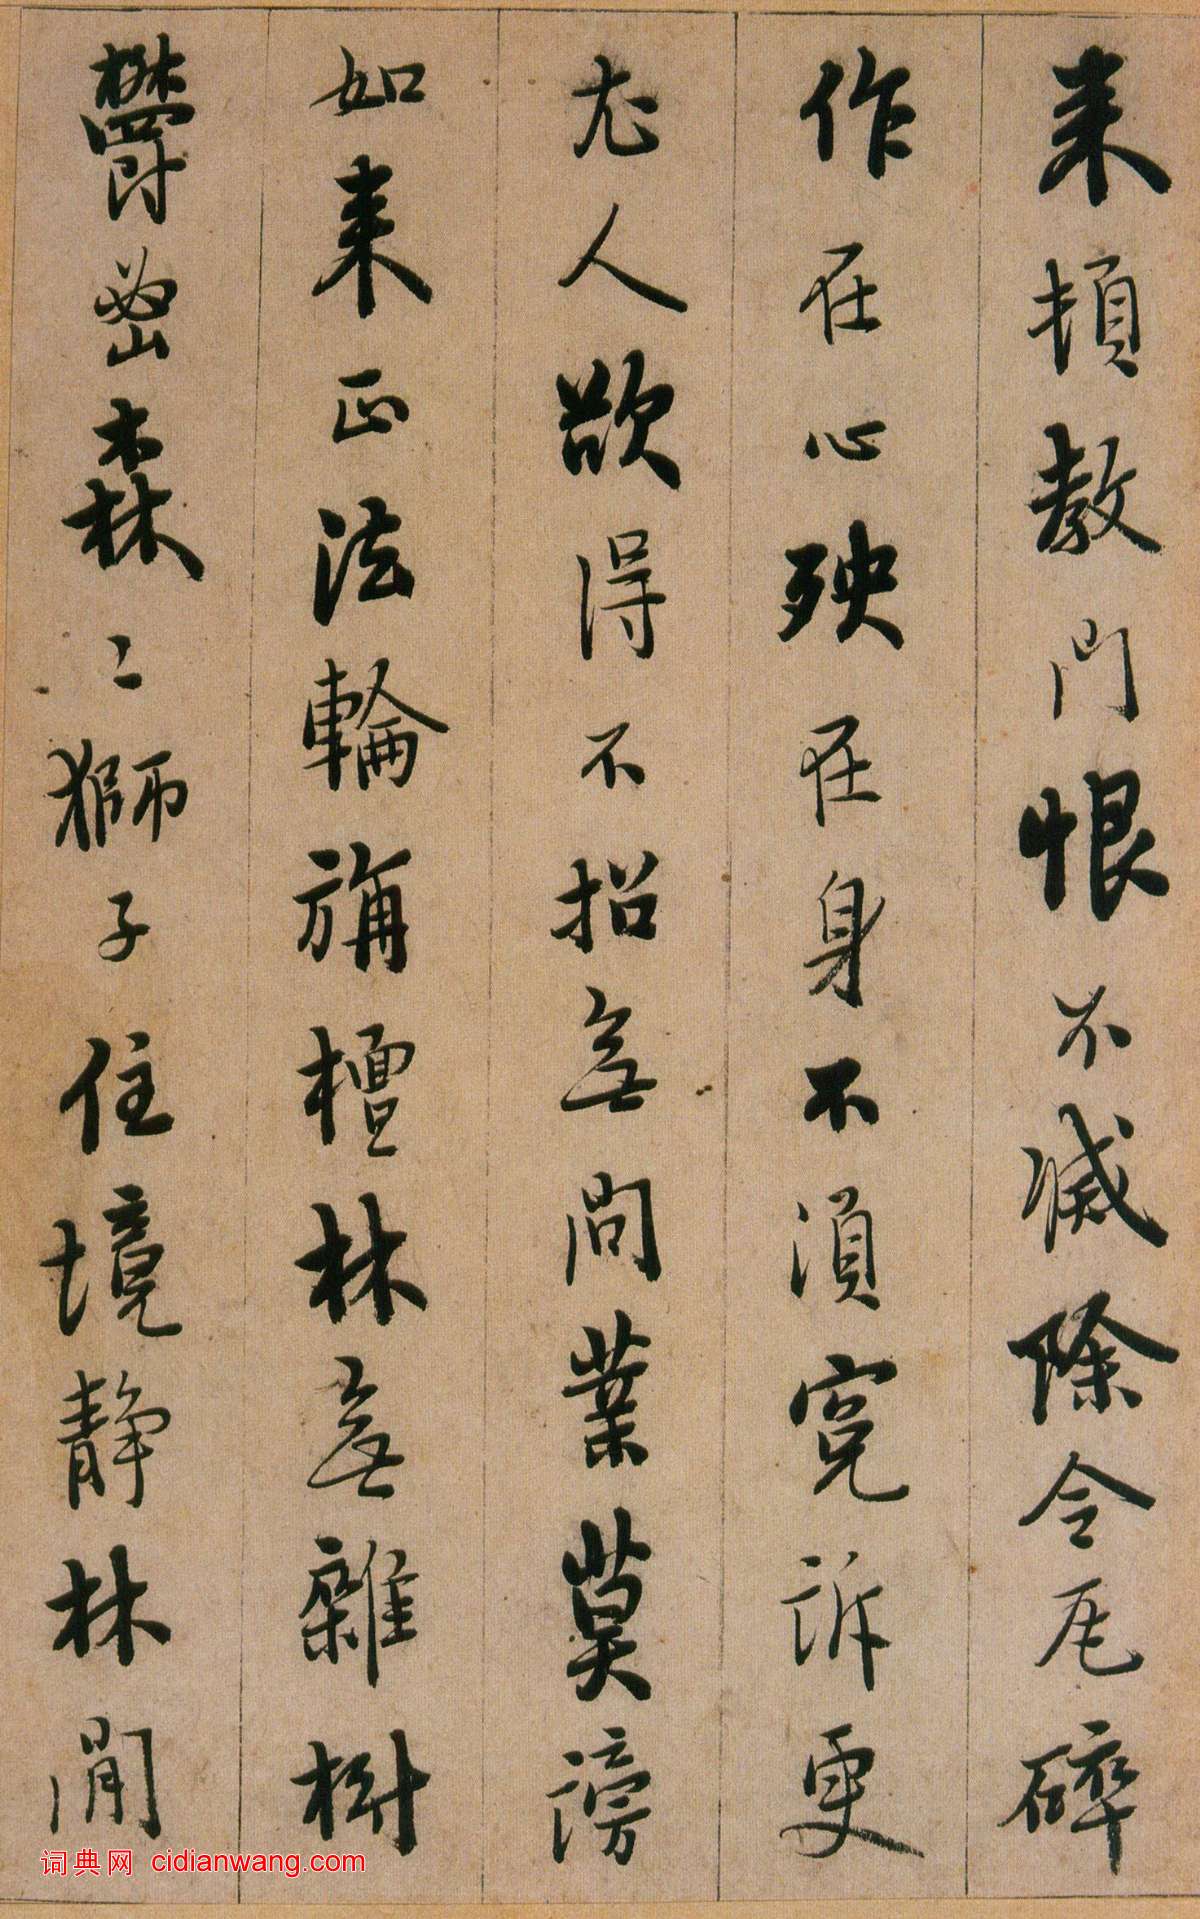 来頓教門恨不滅除令瓦碎
作在心殃在身不須寃訴更
尤人欲得不招無間業莫謗
如来正法輪旃檀林無雜樹
欝密森〻獅子住境静林間
词典网 cidianwang.com